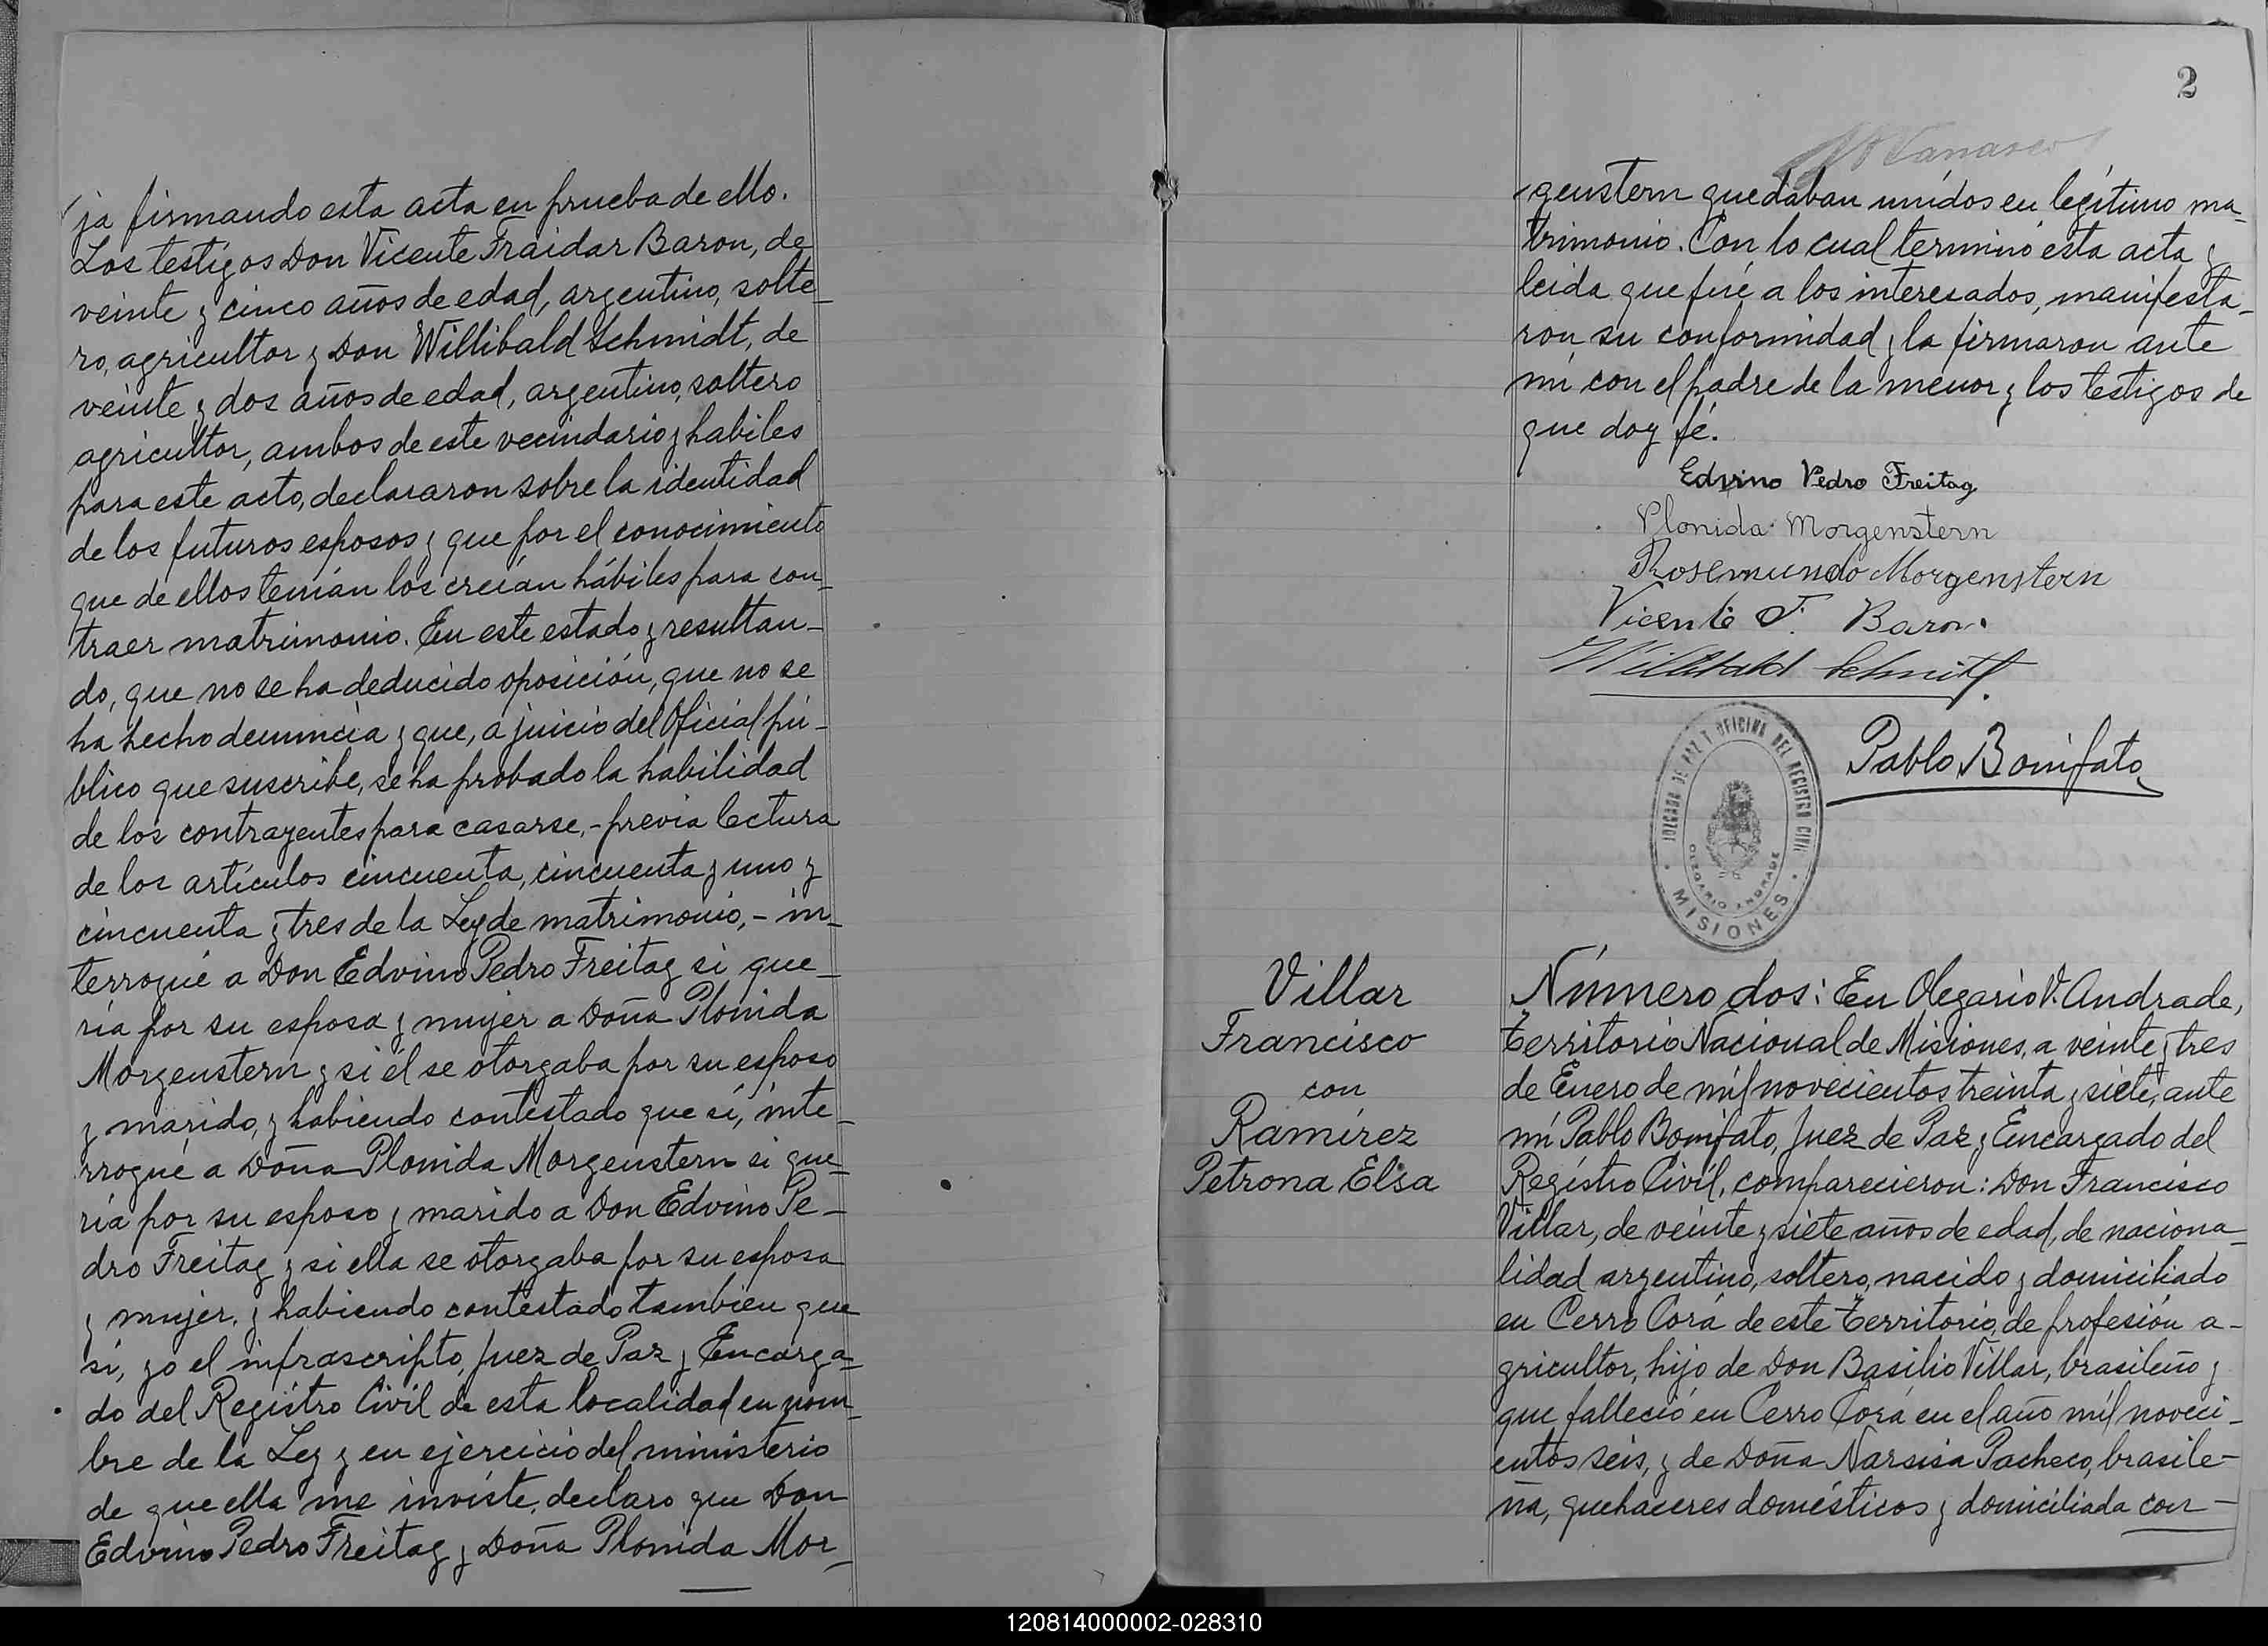 ja firmando esta acta en prueba de ello.
Los testigos Don Vicente Fraidar Baron, de
veinte y cinco años de edad, argentino, solte-
ro, agricultor y Don Willibald Schmidt, de
veinte y dos años de edad, argentino, soltero
agricultor, ambos de este vecindario y habiles
para este acto, declararon sobre la identidad
de los futuros esposos y que por el conocimiento
que de ellos tenían los creían hábiles para con-
traer matrimonio. En este estado y resultan-
do, que no se ha deducido oposición, que no se
ha hecho denuncia y que, a juicio del Oficial pú-
blico que suscribe, se ha probado la habilidad
de los contrayentes para casarse,- previa lectura
de los artículos cincuenta, cincuenta y uno y
cincuenta y tres de la Ley de matrimonio,- in-
terrogué a Don Edvino Pedro Freitag si que-
ría por su esposa y mujer a Doña Plonida
Morgenstern y si él se otorgaba por su esposo
y marido, y habiendo contestado que sí, inte-
rrogué a Doña Plonida Morgenstern si que-
ría por su esposo y marido a Don Edvino Pe-
dro Freitag y si ella se otorgaba por su esposa
y mujer, y habiendo contestado tambien que
sí, yo el infrascripto, Juez de Paz y Encarga-
do del Registro Civil de esta localidad en nom-
bre de la Ley y en ejercicio del ministerio
de que ella me inviste, declaro que Don
Edvino Pedro Freitag y Doña Plonida Mor-
2
genstern quedaban unidos en legítimo ma-
trimonio. Con lo cual terminó esta acta y
leida que fué a los interesados, manifesta-
ron su conformidad y la firmaron ante
mi con el padre de la menor y los testigos de
que doy fé.
Edvino Pedro Freitag
Plonida Morgenstern
Rosemundo Morgenstern
Vicente F. Baron.
Willibald Schmidt
Pablo Bonifato
JUZGADO DE PAZ Y OFICINA DEL REGISTRO CIVIL
OLEGARIO ANDRADE
MISIONES
Villar
Francisco
con
Ramírez
Petrona Elsa
Número dos: En Olegario V. Andrade,
Territorio Nacional de Misiones, a veinte y tres
de Enero de mil novecientos treinta y siete, ante
mí Pablo Bonifato, Juez de Paz y Encargado del
Registro Civil, comparecieron: Don Francisco
Villar, de veinte y siete años de edad, de naciona-
lidad argentino, soltero, nacido y domiciliado
en Cerro Corá de este Territorio, de profesión a-
gricultor, hijo de Don Basilio Villar, brasileño y
que falleció en Cerro Corá en el año mil noveci-
entos seis, y de Doña Narsisa Pacheco, brasile-
ña, quehaceres domésticos y domiciliada con-
120814000002-028310